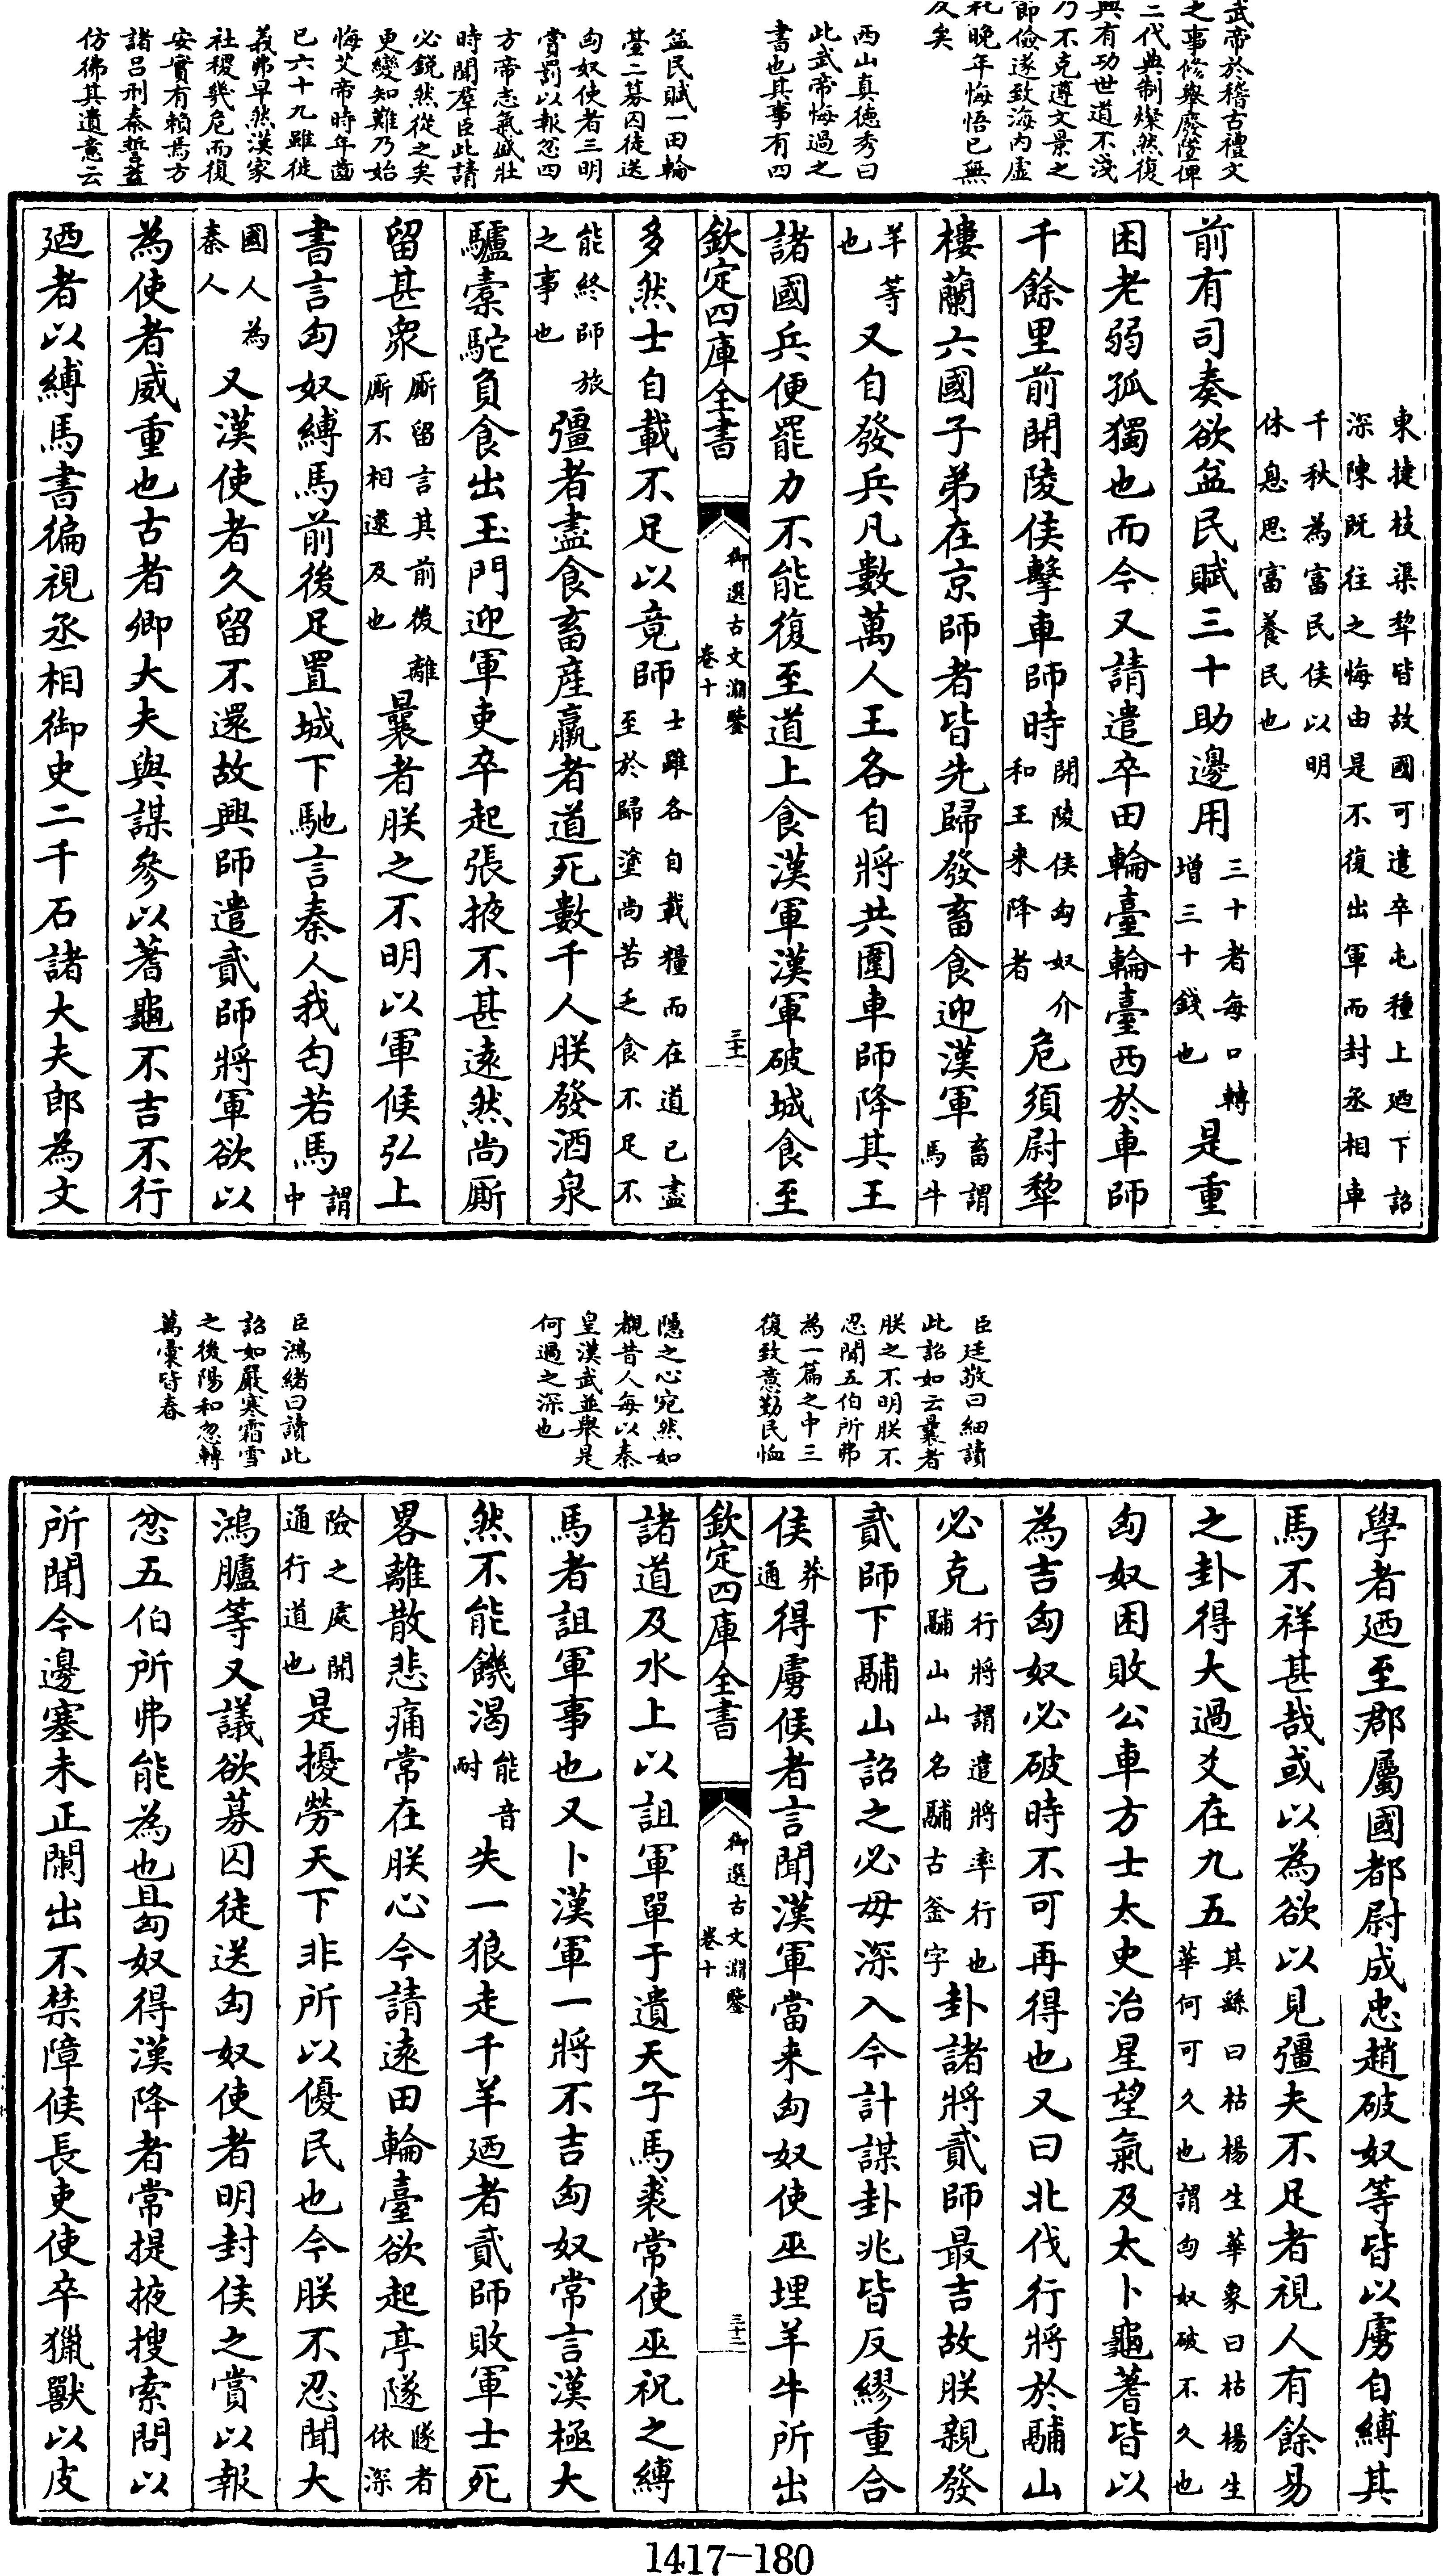 武帝於稽古禮文
之事修舉廢墜俾
二代典制燦然復
興有功世道不淺
乃不克遵文景之
節儉遂致海内虚
耗晚年悔悟已無
及矣
西山真徳秀曰
此武帝悔過之
書也其事有四
益民賦一田輪
䑓二募囚徒送
匈奴使者三明
賞罰以報忿四
方帝志氣盛壯
時聞羣臣此請
必銳然從之矣
更變知難乃始
悔艾帝時年齒
已六十九雖徙
義弗早然漢家
社稷幾危而復
安實有賴焉方
諸吕刑秦誓蓋
仿彿其遺意云
東捷枝渠犂皆故國可遣卒屯種上廼下詔
深陳既往之悔由是不復出軍而封丞相車
千秋為富民侯以明
休息思富養民也
前有司奏欲益民賦三十助邊用三十者每口轉增三十錢也是重
困老弱孤獨也而今又請遣卒田輪臺輪臺西於車師
千餘里前開陵侯擊車師時開陵侯匈奴介和王来降者危須尉犂
樓蘭六國子弟在京師者皆先歸發畜食迎漢軍畜謂馬牛
羊等也又自發兵凡數萬人王各自將共圍車師降其王
諸國兵便罷力不能復至道上食漢軍漢軍破城食至
欽定四庫全書 御選古文淵鑒 卷十 三十一
多然士自載不足以竟師士雖各自載糧而在道已盡至於歸塗尚苦乏食不足不
能終師旅之事也彊者盡食畜産羸者道死數千人朕發酒泉
驢橐駝負食出玉門迎軍吏卒起張掖不甚逺然尚厮
留甚衆厮留言其前後離厮不相逮及也曩者朕之不明以軍候弘上
書言匈奴縛馬前後足置城下馳言秦人我匄若馬謂中
國人為秦人又漢使者久留不還故興師遣貳師將軍欲以
為使者威重也古者卿大夫與謀參以蓍龜不吉不行
廼者以縛馬書徧視丞相御史二千石諸大夫郎為文
臣廷敬曰細讀
此詔如云曩者
朕之不明朕不
忍聞五伯所弗
為一篇之中三
復致意勤民恤
隱之心宛然如
覩昔人每以秦
皇漢武並舉是
何過之深也
臣鴻緒曰讀此
詔如嚴寒霜雪
之後陽和忽轉
萬彚皆春
學者廼至郡屬國都尉成忠趙破奴等皆以虜自縛其
馬不祥甚哉或以為欲以見彊夫不足者視人有餘易
之卦得大過爻在九五其繇曰枯楊生華象曰枯楊生華何可久也謂匈奴破不久也
匈奴困敗公車方士太史治星望氣及太卜龜蓍皆以
為吉匈奴必破時不可再得也又曰北伐行將於鬴山
必克行將謂遣將率行也鬴山山名鬴古釜字卦諸將貳師最吉故朕親發
貳師下鬴山詔之必毋深入今計謀卦兆皆反繆重合
侯莽通得虜候者言聞漢軍當来匈奴使巫埋羊牛所出
欽定四庫全書 御選古文淵鑒 卷十 三十二
諸道及水上以詛軍單于遺天子馬裘常使巫祝之縛
馬者詛軍事也又卜漢軍一將不吉匈奴常言漢極大
然不能饑渴能音耐失一狼走千羊廼者貳師敗軍士死
畧離散悲痛常在朕心今請逺田輪臺欲起亭隧隧者依深
險之處開通行道也是擾勞天下非所以優民也今朕不忍聞大
鴻臚等又議欲募囚徒送匈奴使者明封侯之賞以報
忿五伯所弗能為也且匈奴得漢降者常提掖搜索問以
所聞今邊塞未正闌出不禁障候長吏使卒獵獸以皮
1417-180